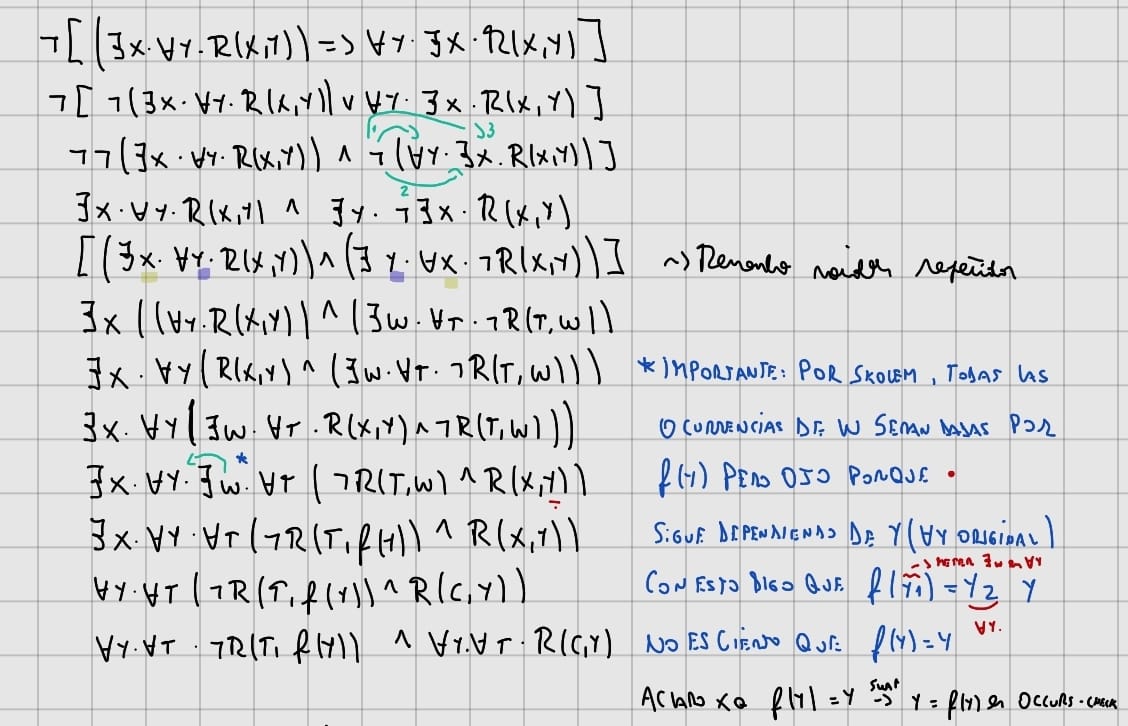 ¬[(∃x.∀y.R(x,y)) => ∀y.∃x.R(x,y)]
¬[¬(∃x.∀y.R(x,y)) ∨ ∀y.∃x.R(x,y)]
1 3
¬¬(∃x.∀y.R(x,y)) ∧ ¬(∀y.∃x.R(x,y))]
2
∃x.∀y.R(x,y) ∧ ∃y.¬∃x.R(x,y)
[(∃x.∀y.R(x,y)) ∧ (∃y.∀x.¬R(x,y))] ~>
∃x((∀y.R(x,y)) ∧ (∃w.∀T.¬R(T,w)))
∃x.∀y(R(x,y) ∧ (∃w.∀T.¬R(T,w)))
∃x.∀y(∃w.∀T.R(x,y) ∧ ¬R(T,w)))
∃x.∀y.∃w*.∀T(¬R(T,w) ∧ R(x,y))
∃x.∀y.∀T(¬R(T,f(y)) ∧ R(x,y))
∀y.∀T(¬R(T,f(y)) ∧ R(c,y))
∀y.∀T.¬R(T,f(y)) ∧ ∀y.∀T.R(c,y)
* IMPORTANTE: POR SKOLEM, TODAS LAS
OCURRENCIAS DE W SERAN DADAS POR
f(y) PERO OJO PORQUE •
SIGUE DEPENDIENDO DE Y (∀y ORIGINAL)
-> METER ∃w en ∀y
CON ESTO DIGO QUE f(y1) = y2 y
∀y.
NO ES CIERTO QUE f(y)=y
ACLARO XQ f(y) = y -> y = f(y) en OCCURS-CHECK